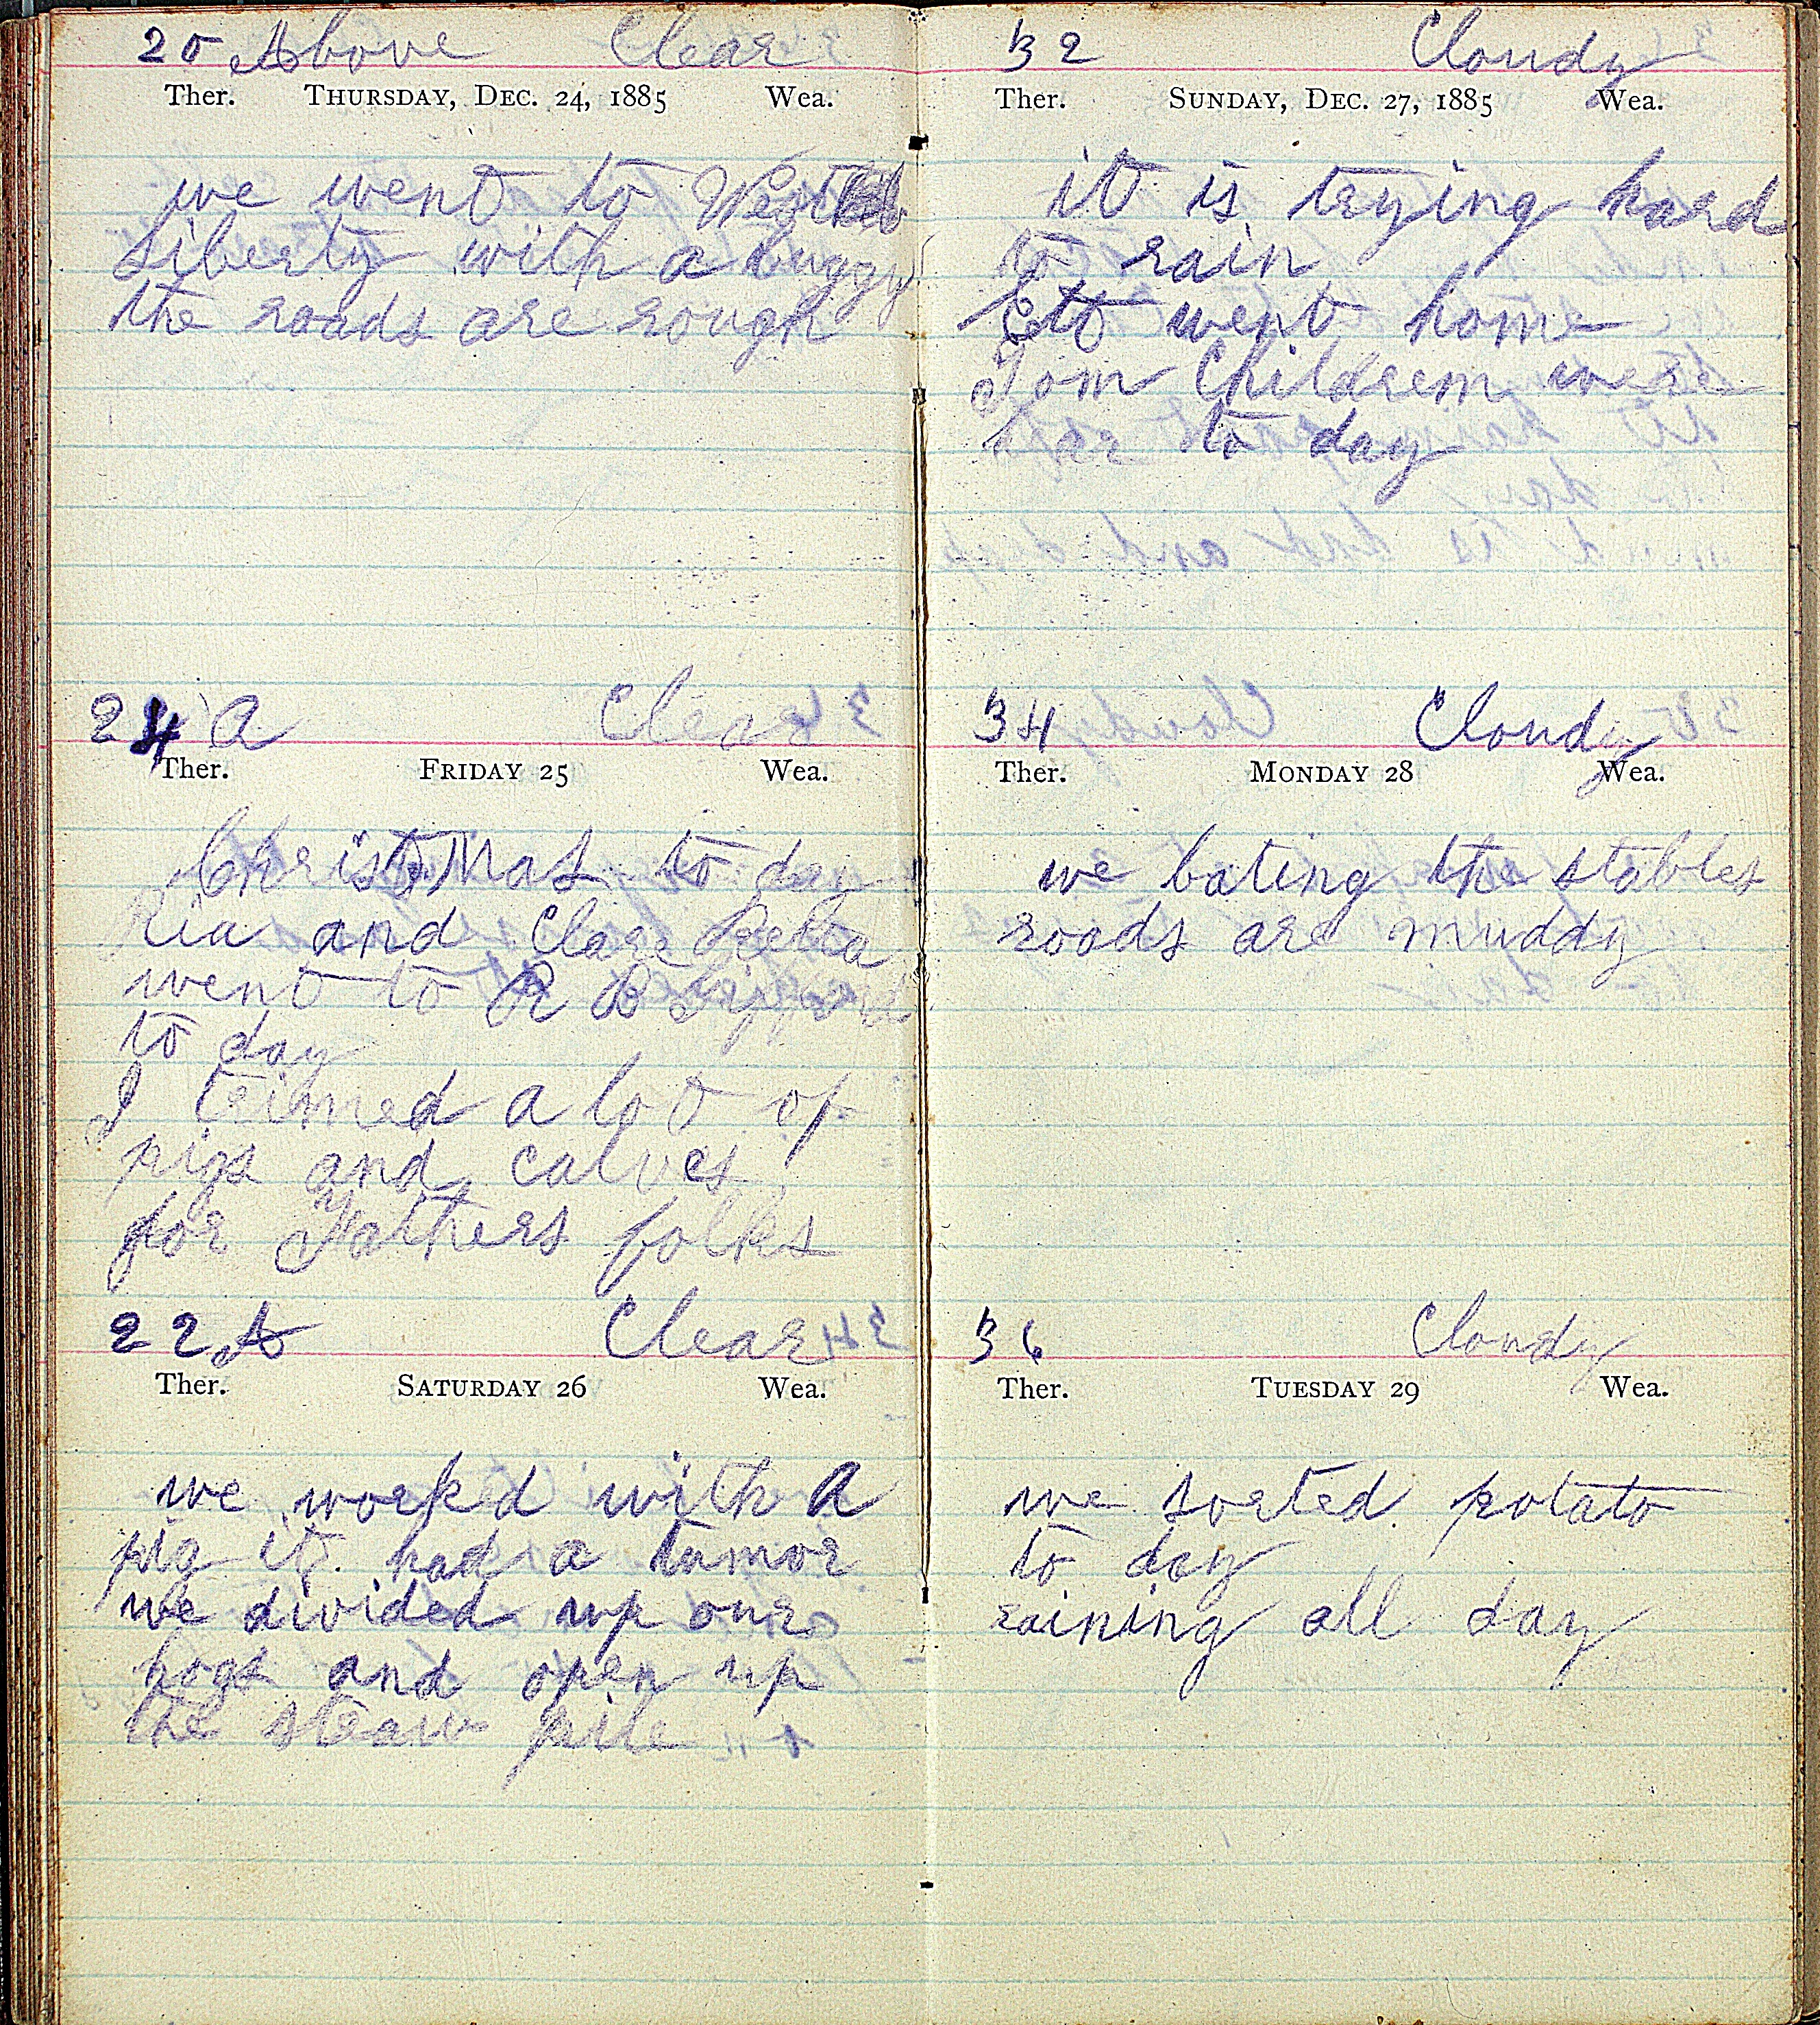 20 Above Clear
Ther. THURSDAY, DEC. 24, 1885 Wea.
we went to West
Liberty with a buggy
the roads are rough
24 A Clear
Ther. FRIDAY 25 Wea.
Christmas to day
Ria and Clare
went to R B
to day
I trimed a lot of
pigs and calves
for Fathers folks
22 A Clear
Ther. SATURDAY 26 Wea.
we worked with A
pig it had a tumor
we divided up our
hogs and open up
the straw pile
32 Cloudy
Ther. SUNDAY, DEC. 27, 1885 Wea.
it is trying hard
to rain
Ett went home
Tom Childrem were
hear to day
34 Cloudy
Ther. MONDAY 28 Wea.
we bating the stables
roads are muddy
36 Cloudy
Ther. TUESDAY 29 Wea.
we sorted potato
to day
raining all day